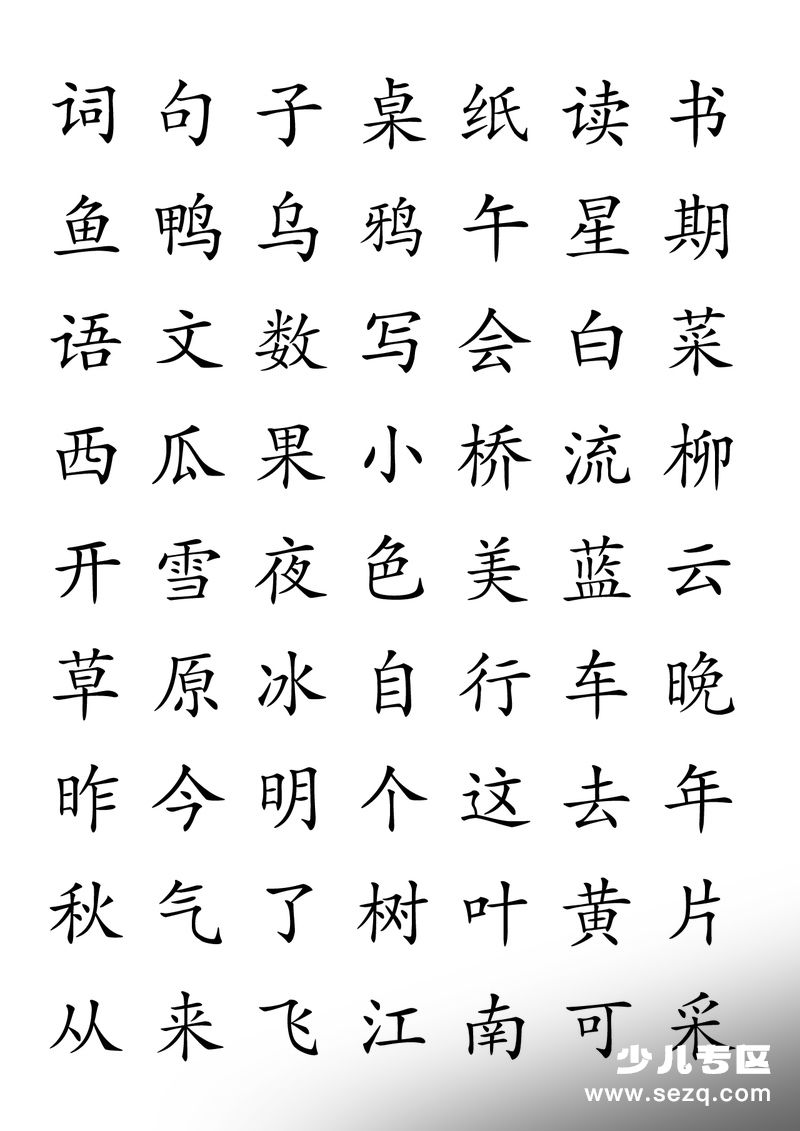 词 句 子 桌 纸 读 书
鱼 鸭 乌 鸦 午 星 期
语 文 数 写 会 白 菜
西 瓜 果 小 桥 流 柳
开 雪 夜 色 美 蓝 云
草 原 冰 自 行 车 晚
昨 今 明 个 这 去 年
秋 气 了 树 叶 黄 片
从 来 飞 江 南 可 采
少儿专区
www.sezq.com